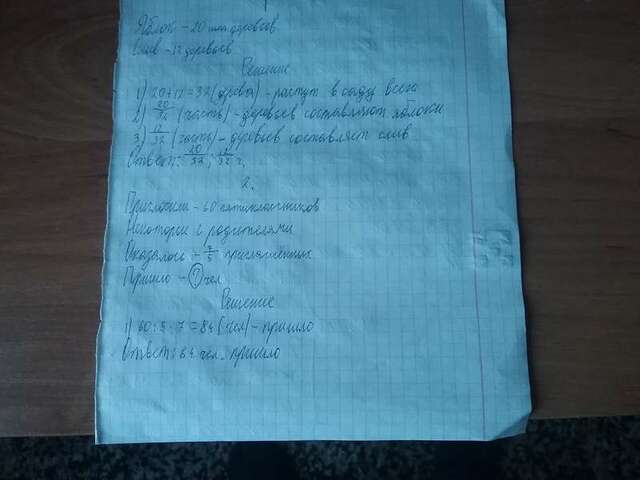 Яблок - 20 шт деревьев
Слив - 12 деревьев
Решение
1) 20+12=32 (дерева) - растут в саду всего
2) 20/32 (часть) - деревьев составляют яблоки
3) 12/32 (часть) - деревьев составляет слив
Ответ: 20/32, 12/32 ч.
2.
Пригласили - 60 пятиклассников
Некоторые с родителями
Оказалось - 7/5 приглашённых
Пришло - ? чел.
Решение
1) 60:5·7=84 (чел) - пришло
Ответ: 84 чел. пришло